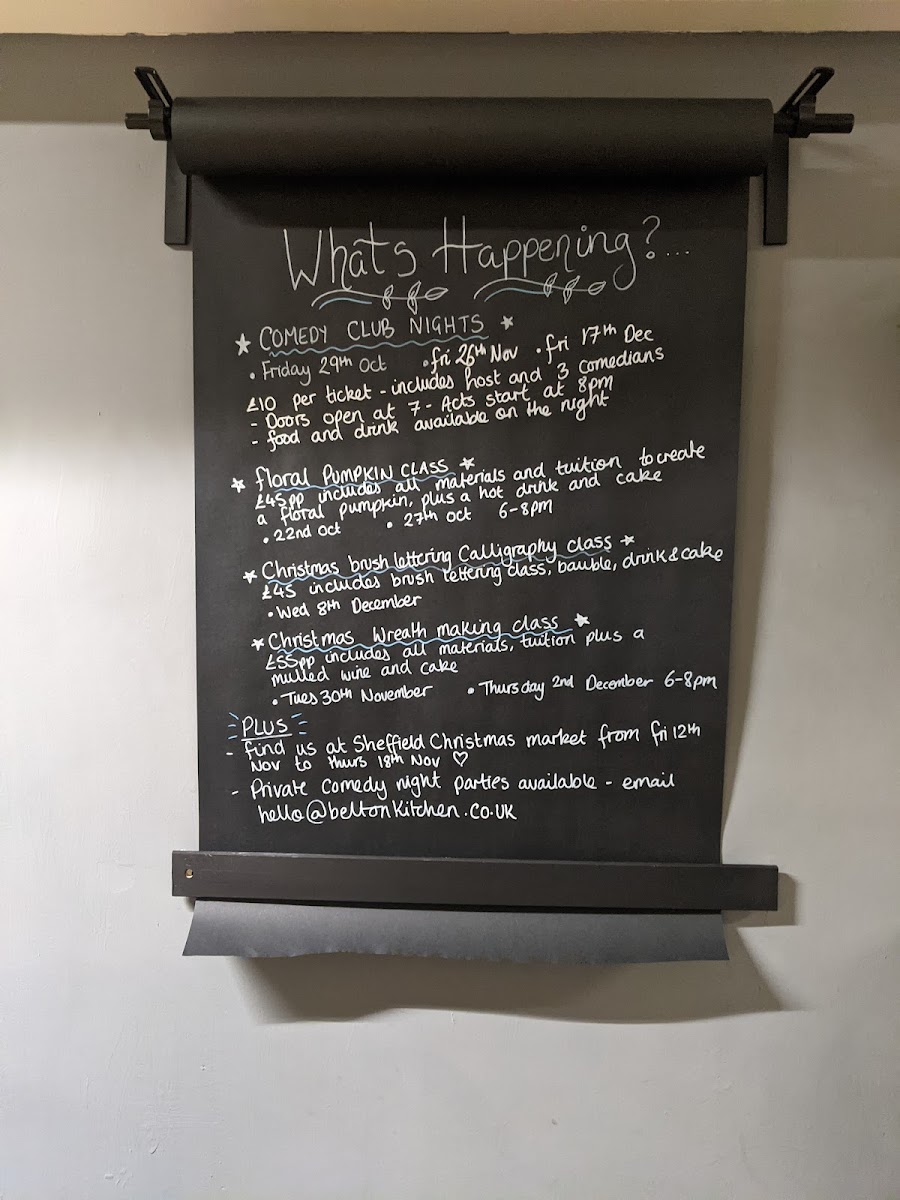 Whats Happening?...
COMEDY CLUB NIGHTS
• Friday 29th Oct • fri 26th Nov • fri 17th Dec
£10 per ticket - includes host and 3 comedians
- Doors open at 7 - Acts start at 8pm
- food and drink available on the night
floral PUMPKIN CLASS
£45pp includes all materials and tuition to create
a floral pumpkin, plus a hot drink and cake
• 22nd Oct • 27th Oct 6-8pm
Christmas brush lettering Calligraphy class
£45 includes brush lettering class, bauble, drink & cake
• Wed 8th December
Christmas Wreath making class
£55pp includes all materials, tuition plus a
mulled wine and cake
• Tues 30th November • Thursday 2nd December 6-8pm
PLUS
- find us at Sheffield Christmas market from fri 12th
Nov to thurs 18th Nov ♡
- Private Comedy night parties available - email
hello@beltonkitchen.co.uk